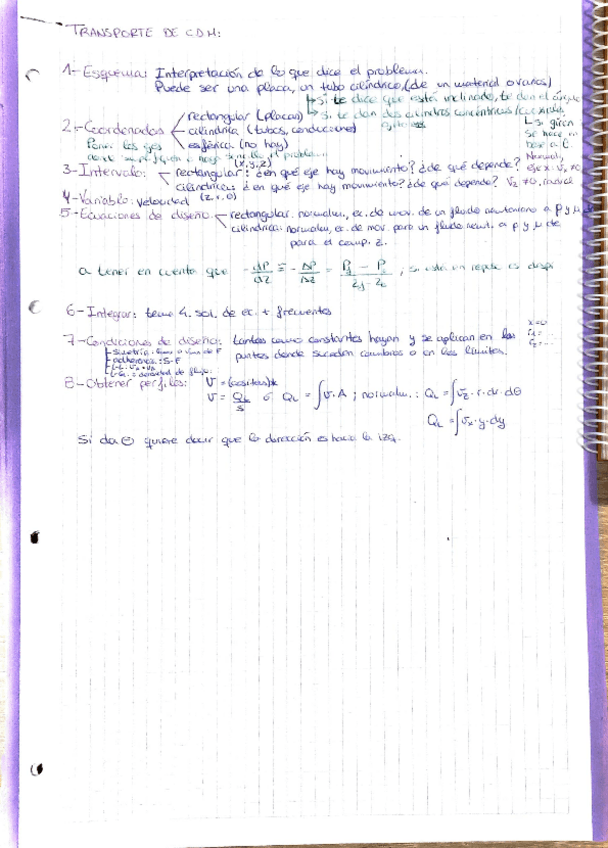 TRANSPORTE DE CDM:
1-Esquema: Interpretación de lo que dice el problema.
Puede ser una placa, un tubo cilíndrico, (de un material o varios)
↳ si te dice que está inclinado, te dan el ángulo
2-Coordenadas rectangular (placas) ↳ si te dan dos cilindros concéntricos
cilíndrica (tubos, conducciones)
↳ si giran
esférica (no hay)
Poner los ejes
se hace en
base a θ.
(x,y,z)
3-Intervalo: rectangular: ¿en qué eje hay movimiento? ¿de qué depende?
cilíndrica: ¿en qué eje hay movimiento? ¿de qué depende? Vz ≠ 0, radial
(z, r, θ)
4-Variable: velocidad
5-Ecuaciones de diseño rectangular: normalm., ec. de mov. de un fluido newtoniano a ρ y μ
cilíndrica: normalm, ec. de mov. para un fluido newt. a ρ y μ cte
para el comp. z.
a tener en cuenta que -dP/dz = -ΔP/Δz
6-Integrar: tema 4. sol. de ec. + frecuentes
7-Condiciones de diseño: tantas como constantes hayan y se aplican en los
puntos donde sucedan cambios o en los límites.
adherencia: S-F
8-Obtener perfiles: V =
V = QL/S o QL = ∫V·A ; normalm.: QL = ∫Vz·r·dr·dθ
QL = ∫Vx·y·dy
Si da ⊖ quiere decir que la dirección es hacia la izq.